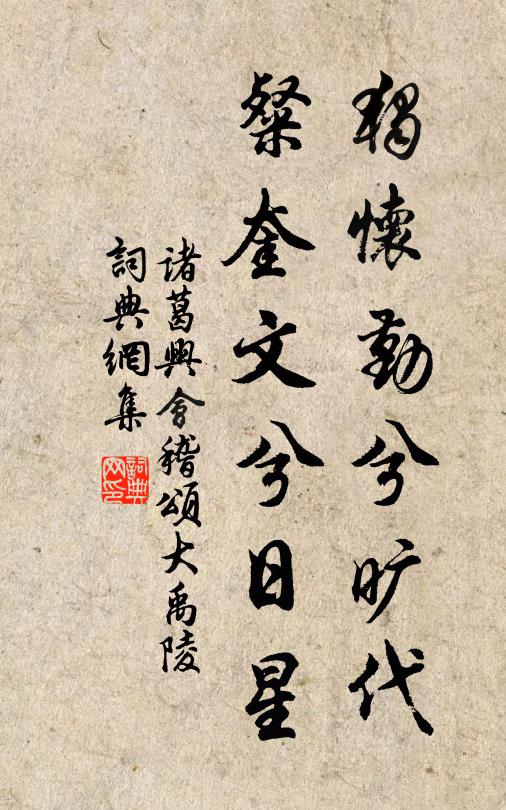 獨懷勤兮旷代
粲奎文兮日星
诸葛興會稽頌大禹陵
詞典網集
詞典网印